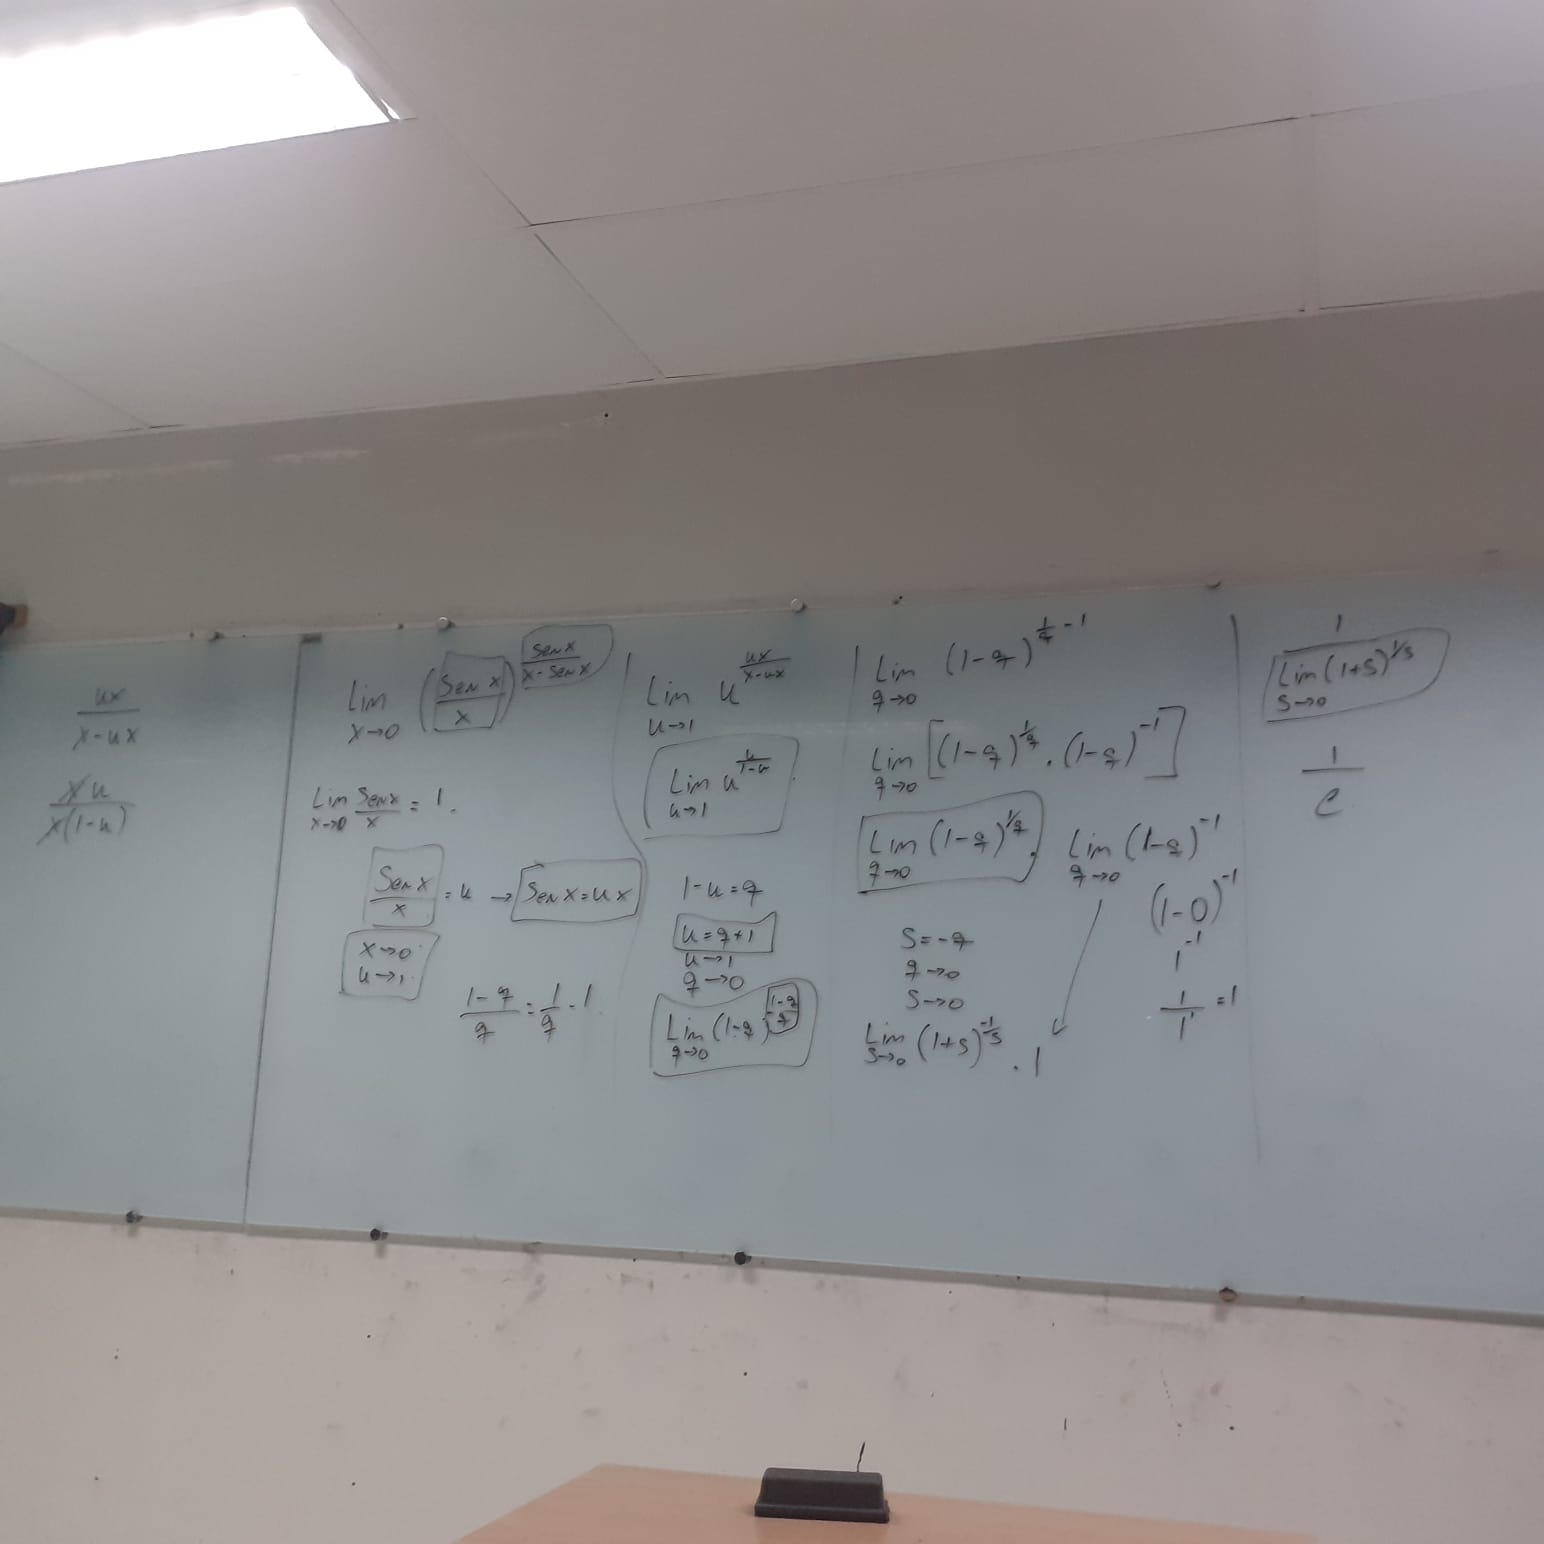 ux / x-ux
xu / x(1-u)
Lim x→0 (Sen x / x)^(Sen x / x-Sen x)
Lim x→0 Sen x / x = 1.
Sen x / x = u → Sen x = u x
x→0
u→1
1-q / q = 1/q - 1
Lim u→1 u^(ux / x-ux)
Lim u→1 u^(u / 1-u)
1-u=q
u=q+1
u→1
q→0
Lim q→0 (1-q)^(1-q / q)
Lim q→0 (1-q)^(1/q - 1)
Lim q→0 [(1-q)^(1/q) . (1-q)^-1]
Lim q→0 (1-q)^(1/q) . Lim q→0 (1-q)^-1
(1-0)^-1
1^-1
1 / 1^1 = 1
S=-q
q→0
S→0
Lim S→0 (1+S)^(-1/S) . 1
1 / Lim S→0 (1+S)^(1/S)
1 / e